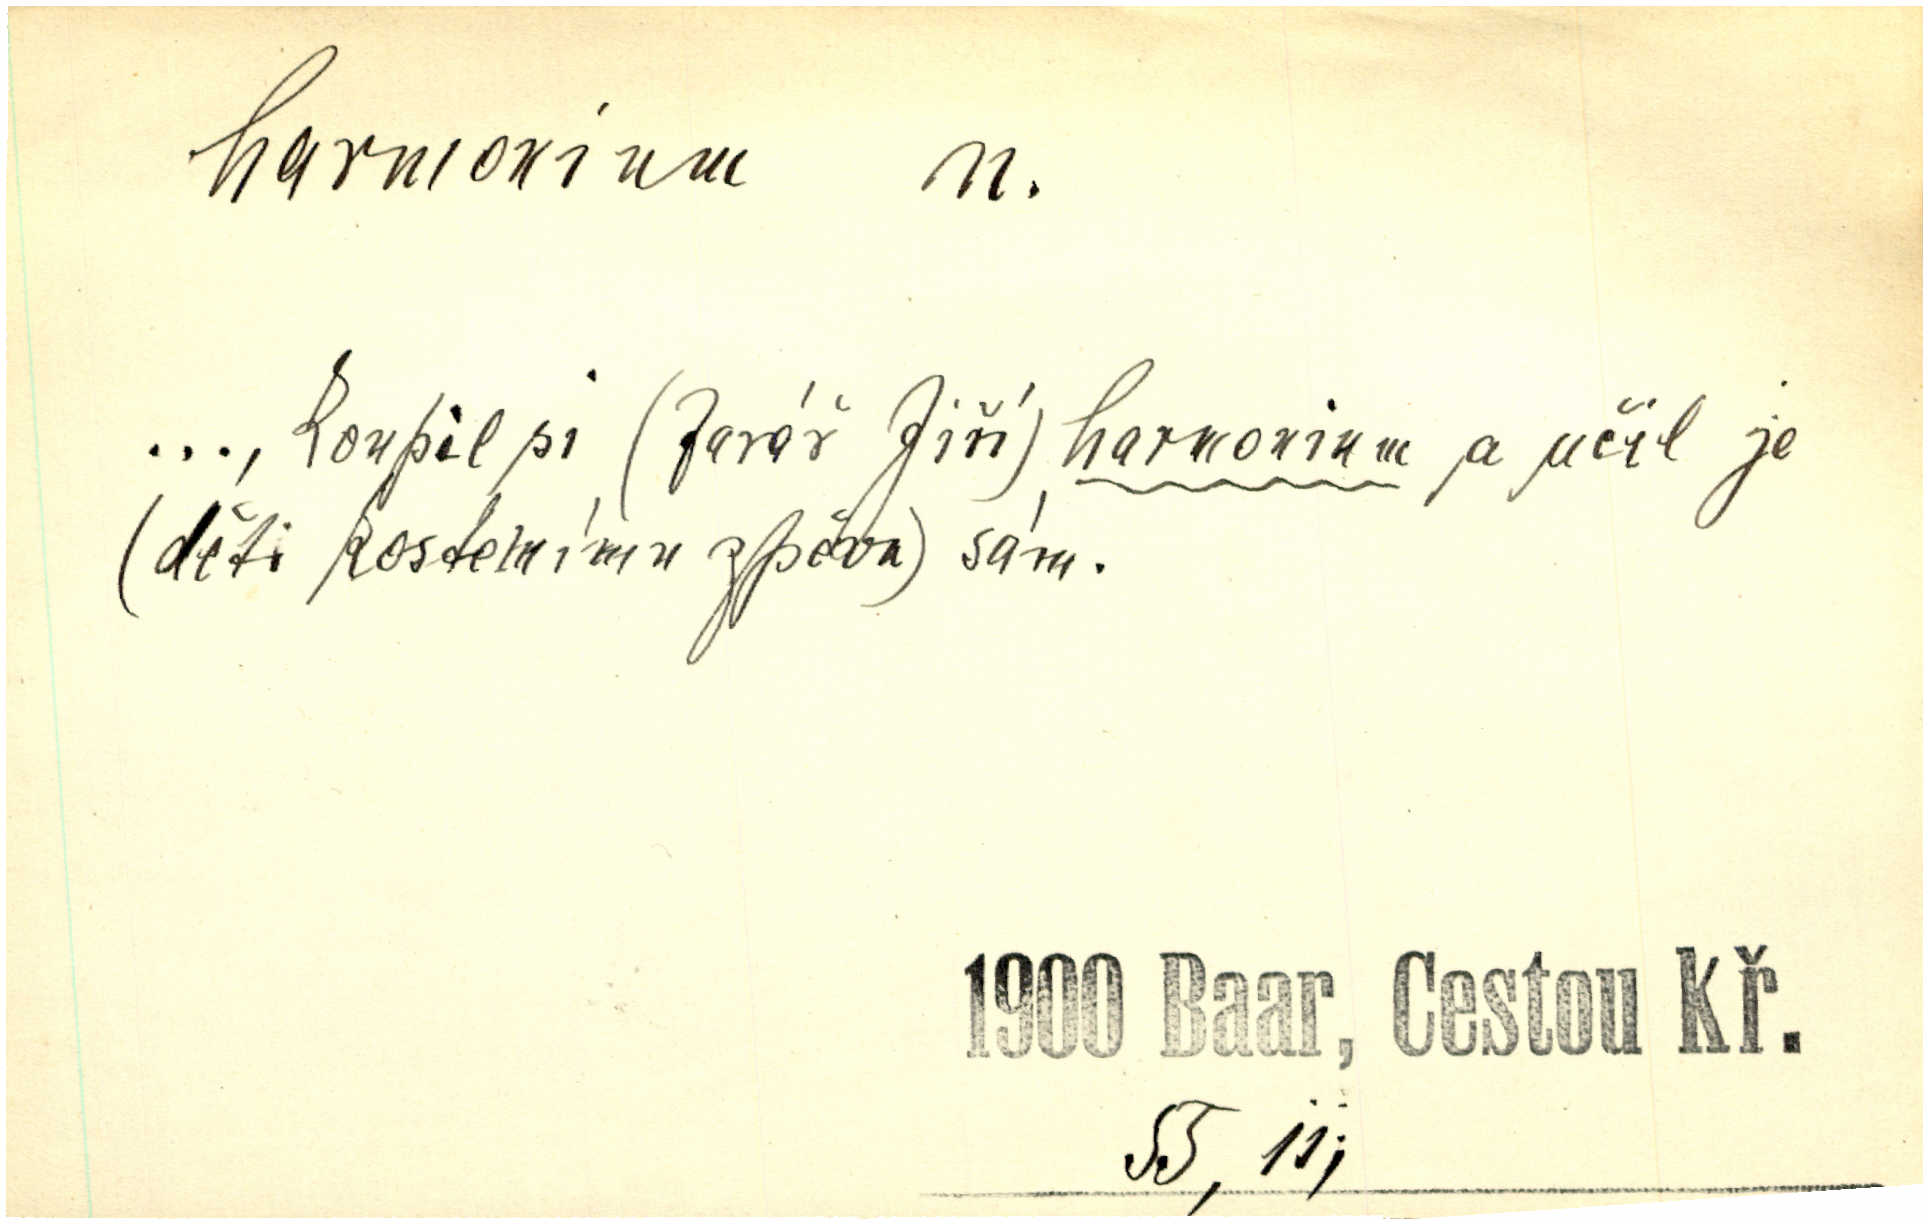 harmonium n.
..., koupil si (farář Jiří) harmonium a učil je
(děti kostelnímu zpěvu) sám.
1900 Baar, Cestou kř.
55, ii;